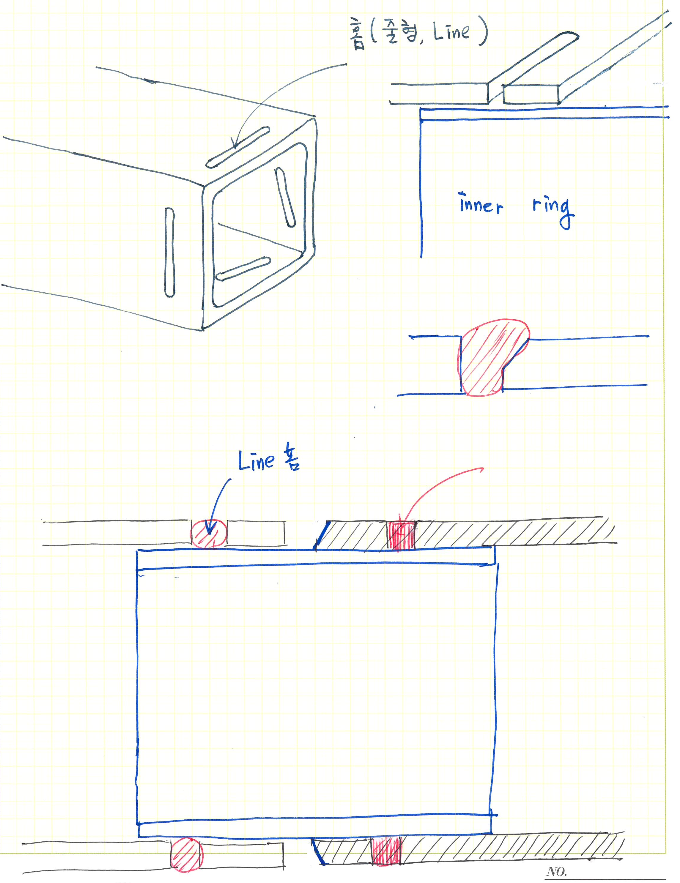 홈(줄형, Line)
inner ring
Line 홈
NO.